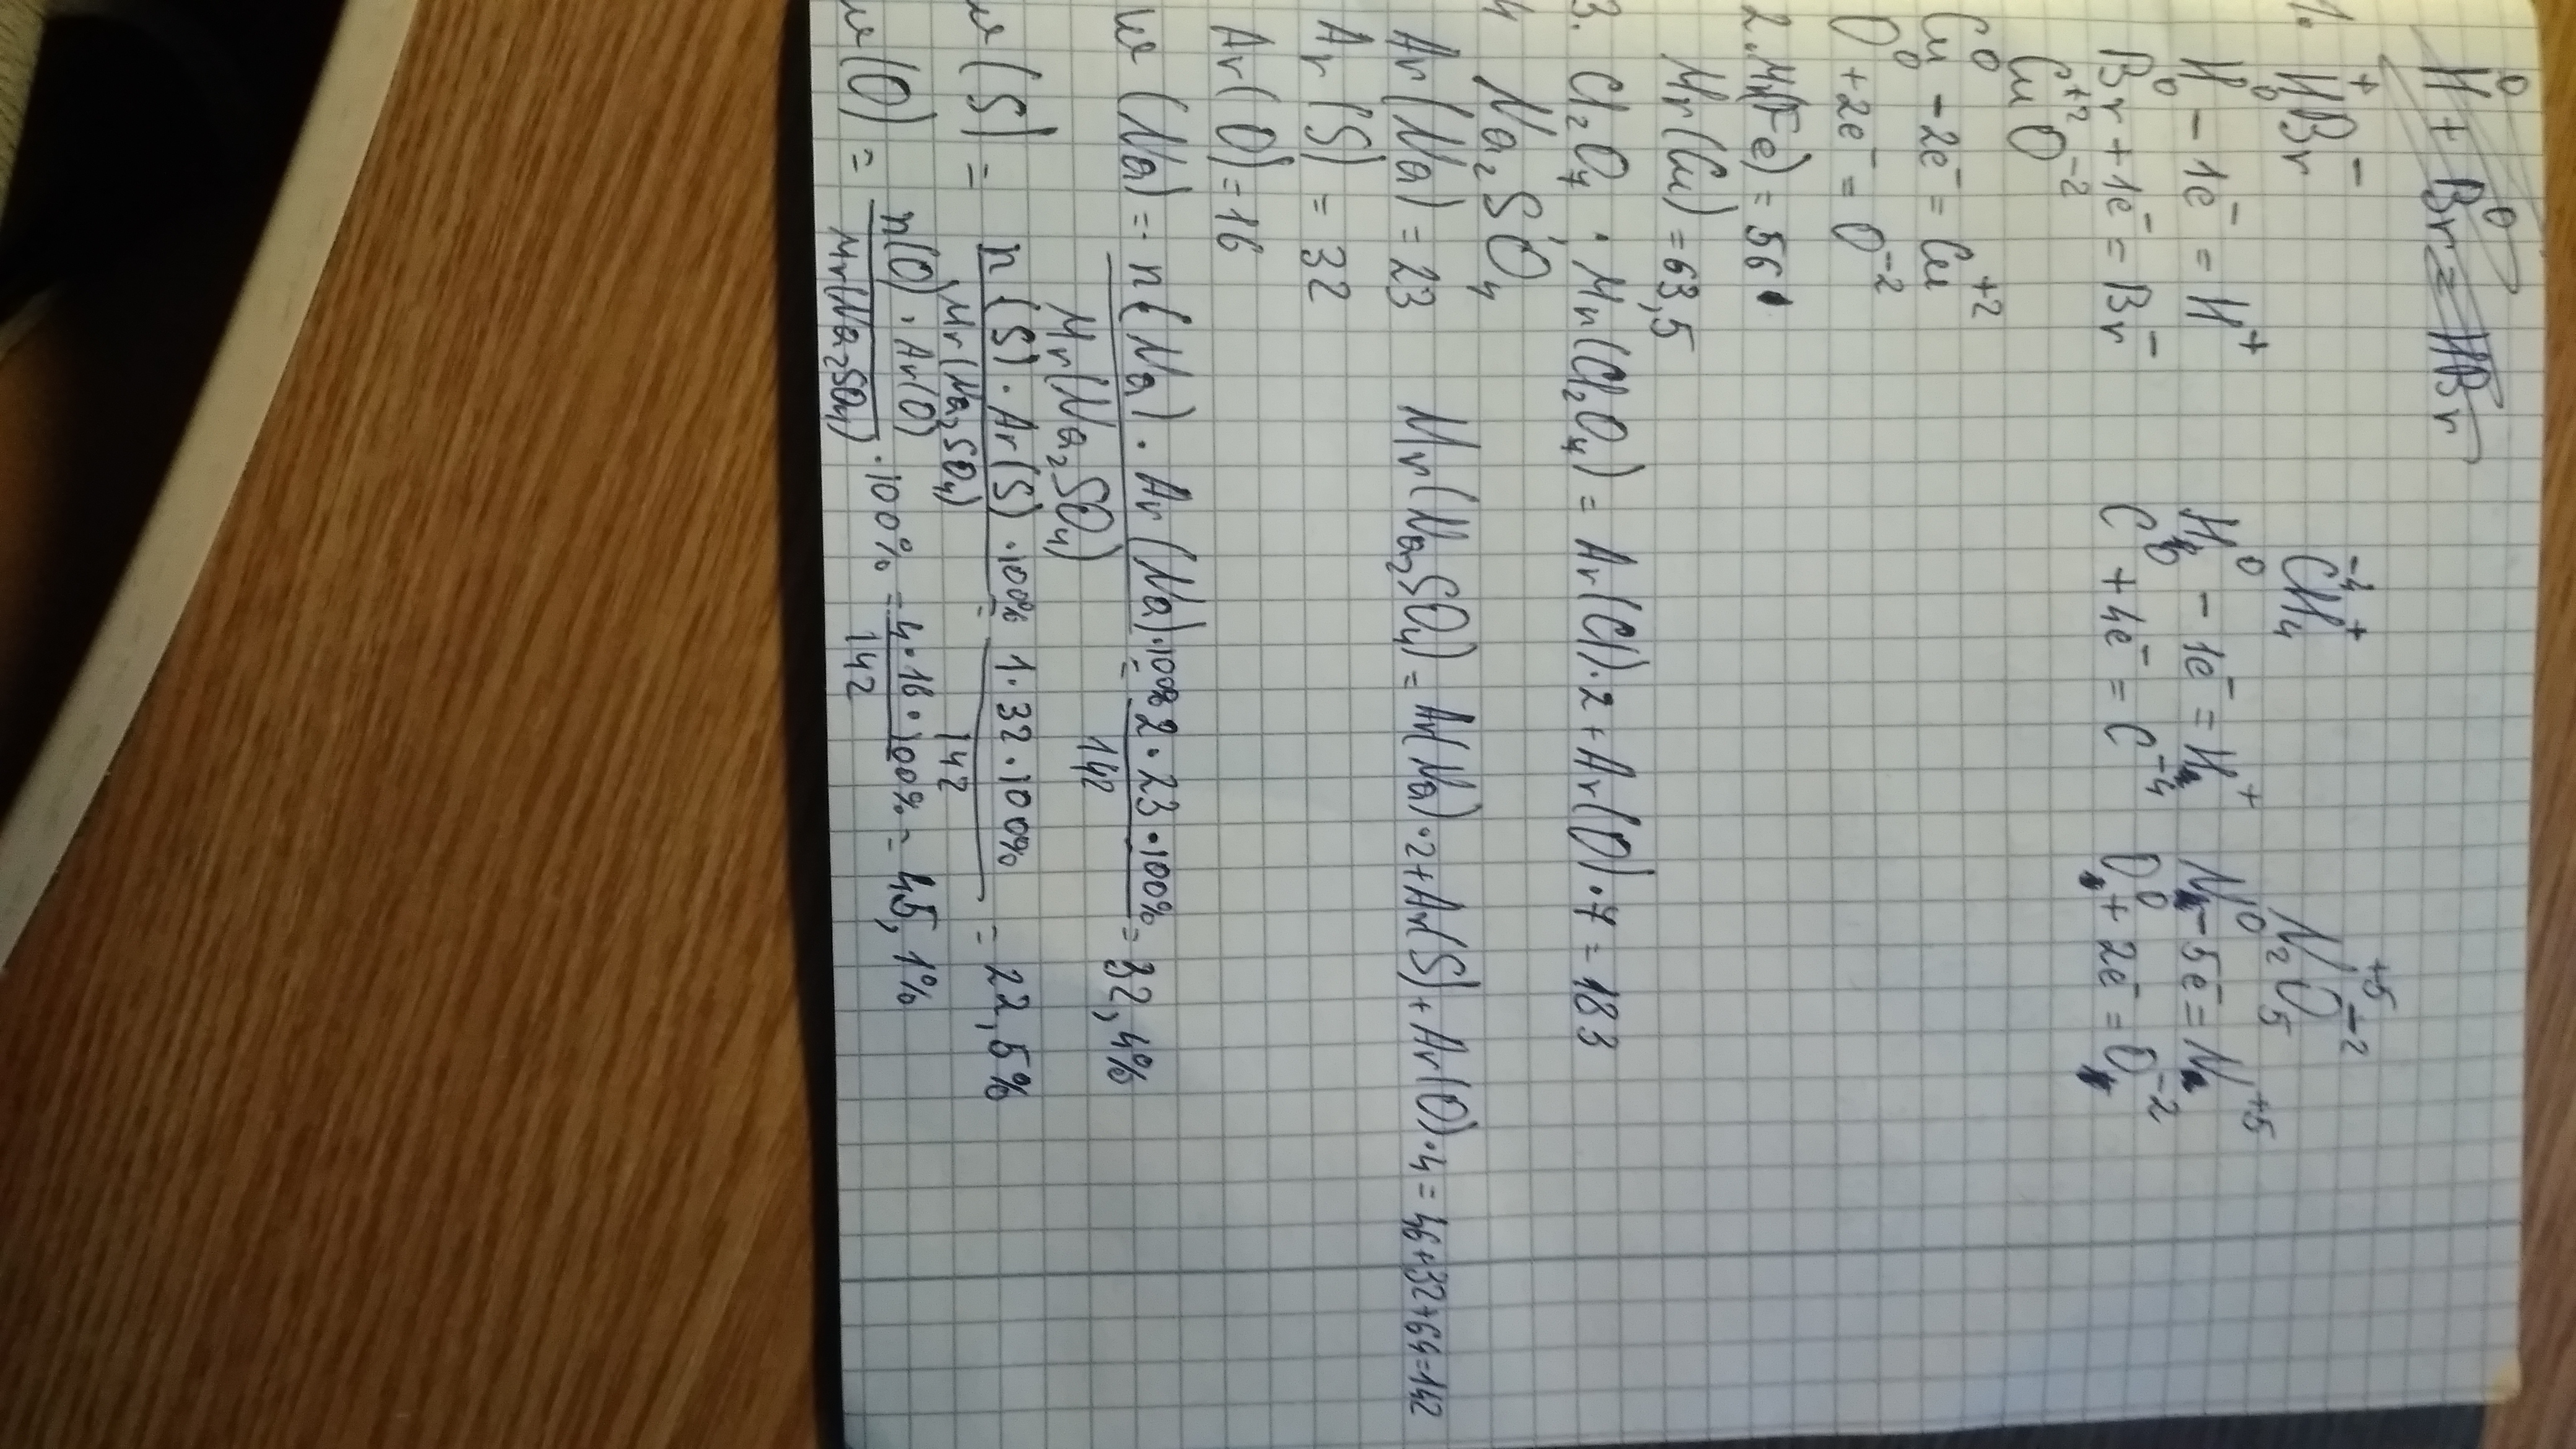 H⁰ + Br⁰ = HBr
1. H⁺Br⁻ C⁻⁴H₄⁺ N₂⁺⁵O₅⁻²
H⁰ - 1e⁻ = H⁺ H⁰ - 1e⁻ = H⁺ N⁰ - 5e⁻ = N⁺⁵
Br⁰ + 1e⁻ = Br⁻ C⁰ + 4e⁻ = C⁻⁴ O⁰ + 2e⁻ = O⁻²
Cu⁺²O⁻²
Cu⁰ - 2e⁻ = Cu⁺²
O⁰ + 2e⁻ = O⁻²
2. Mr(Fe) = 56
Mr(Cu) = 63,5
3. Cl₂O₇ . Mr(Cl₂O₇) = Ar(Cl)·2 + Ar(O)·7 = 183
4 Na₂SO₄
Ar(Na) = 23 Mr(Na₂SO₄) = Ar(Na)·2 + Ar(S) + Ar(O)·4 = 46+32+64=142
Ar(S) = 32
Ar(O) = 16
w(Na) = n(Na)·Ar(Na)·100% / Mr(Na₂SO₄) = 2·23·100% / 142 = 32,4%
w(S) = n(S)·Ar(S)·100% / Mr(Na₂SO₄) = 1·32·100% / 142 = 22,5%
w(O) = n(O)·Ar(O) / Mr(Na₂SO₄) ·100% = 4·16·100% / 142 = 45,1%